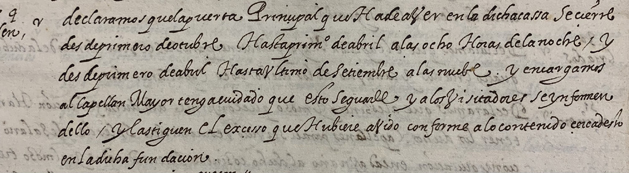 q declaramos que la puerta Prinçipal que Ha de aver en la dicha cassa se çierre
en, des de primero de otubre Hasta prim.º de abril a las ocho Horas de la noche / y
des de primero de abril Hasta Vltimo de setiembre a las nuebe . y encargamos
al Capellan Mayor tenga cuidado que esto se guarde y a los Visitadores se ynformen
dello / y castiguen El excesso que Hubiere avido conforme a lo contenido cerca desto
en la dicha fundacion